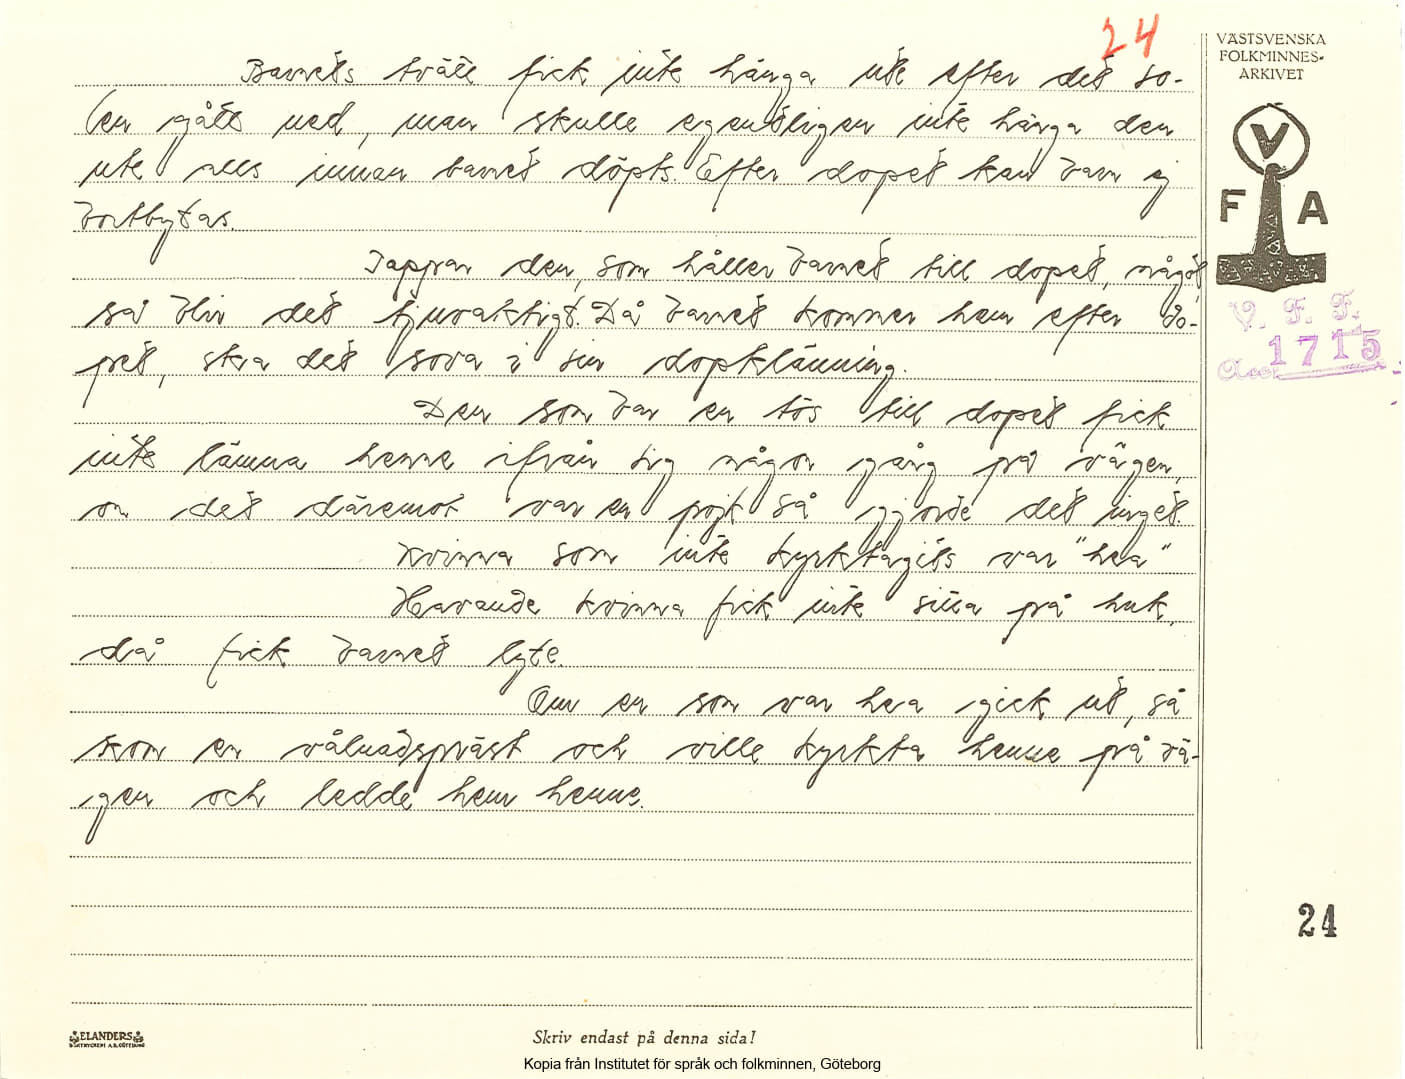 24
VÄSTSVENSKA
FOLKMINNES-
ARKIVET
V
F A
V. F. F.
Acc. 1715
Barnets tvätt fick inte hänga ute efter det so-
len gått ned, man skulle egentligen inte hänga den
ute alls innan barnet döpts. Efter dopet kan barn ej
bortbytas.
Tappar den, som håller barnet till dopet, något,
så blir det tjuvaktigt. Då barnet kommer hem efter do-
pet, ska det sova i sin dopklänning.
Den som bar en tös till dopet fick
inte lämna henne ifrån sig någon gång på vägen,
om det däremot var en pojk så gjorde det inget.
Kvinna som inte kyrktagits var "hea"
Havande kvinna fick inte sitta på huk,
då fick barnet lyte.
Om en som var hea gick ut, så
kom en vålnadspräst och ville kyrkta henne på vä-
gen och ledde hem henne.
24
ELANDERS
BOKTRYCKERI A.B. GÖTEBORG
Skriv endast på denna sida!
Kopia från Institutet för språk och folkminnen, Göteborg